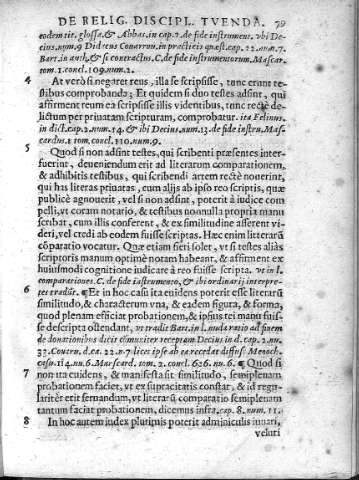 DE RELIG. DISCIPL. TVENDA. 79
eodem tit. glossa. & Abbas. in cap. 2. de fide instrument. vbi De-
cius. num. 9 Didacus Couarruu. in practicis quæst. cap. 22. num. 7.
Bart. in auth. & si contractus C. de fide instrumentorum. Mascar.
tom. 1. concl. 109. num. 2.
4 At verò si negaret reus, illa se scripsisse, tunc erunt te-
stibus comprobanda; Et quidem si duo testes adsint, qui
affirment reum ea scripsisse illis videntibus, tunc rectè de-
lictum per priuatam scripturam, comprobatur. ita Felinus.
in dict. cap. 2. num. 14. & ibi Decius. num. 13. de fide instru. Mas-
cardus. 1 tom. concl. 110. num. 9.
5 Quod si non adsint testes, qui scribenti præsentes inter-
fuerint, deueniendum erit ad literarum comparationem,
& adhibitis testibus, qui scribendi artem rectè nouerint,
qui has literas priuatas, cum alijs ab ipso reo scriptis, quæ
publicè agnouerit, vel si non adsint, poterit à iudice com
pelli, vt coram notario, & testibus nonnulla propria manu
scribat, cum illis conferent, & ex similitudine asserent vi-
deri, vel credi ab eodem fuisse scriptas. Hæc enim litterarũ
cõparatio vocatur. Quæ etiam fieri solet, vt si testes aliàs
scriptoris manum optimè notam habeant, & affirment ex
huiusmodi cognitione iudicare à reo fuisse scripta. vt in l.
comparationes. C. de fide instrumento, & ibi ordinarij interpre-
6 tes tradũt. ¶ Et in hoc casu ita euidens poterit esse litterarũ
similitudo, & characterum vna, & eadem figura, & forma,
quod plenam efficiat probationem, & ipsius rei manu fuis-
se descripta ostendant, vt tradit Bart. in l. nuda ratio ad finem
de donationibus dicit cõmuniter receptum Decius in d. cap. 2. nu.
33. Couru. d. ca. 22. n. 7 licet ipse ab ea recedat diffusè Menoch.
casu. 114. nu. 6. Mascard. tom. 2. concl. 626. nu. 6. ¶ Quod si
7 non ita euidens, & manifesta sit similitudo, semiplenam
probationem faciet, vt ex supra citatis constat, & id regu-
lariter erit seruandum, vt literarũ comparatio semiplenam
tantum faciat probationem, dicemus infra. cap. 8. num. 11.
8 In hoc autem iudex pluripis poterit adminiculis iuuari,
veluti